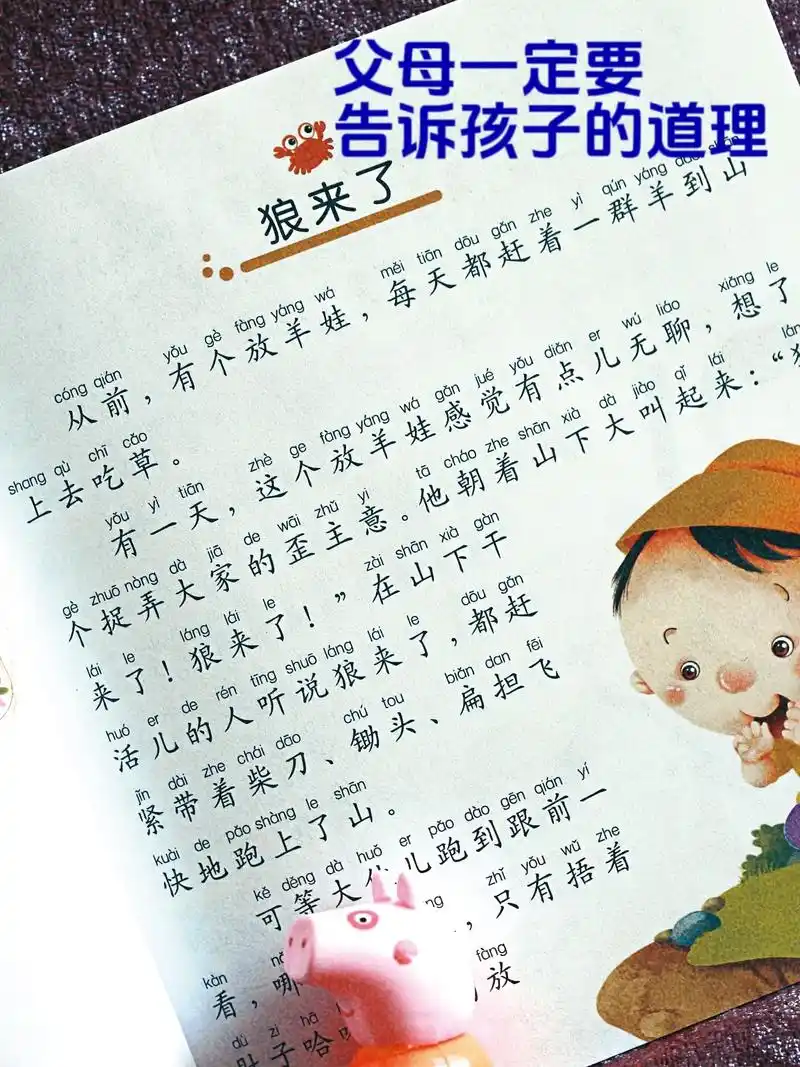 父母一定要
告诉孩子的道理
狼来了
cóng qián yǒu gè fàng yáng wá měi tiān dōu gǎn zhe yì qún yáng dào shān
从前，有个放羊娃，每天都赶着一群羊到山
shang qù chī cǎo
上去吃草。
yǒu yì tiān zhè ge fàng yáng wá gǎn jué yǒu diǎn er wú liáo xiǎng le
有一天，这个放羊娃感觉有点儿无聊，想了
gè zhuō nòng dà jiā de wāi zhǔ yi tā cháo zhe shān xià dà jiào qǐ lái láng
个捉弄大家的歪主意。他朝着山下大叫起来：“狼
lái le láng lái le zài shān xià gàn
来了！狼来了！”在山下干
huó er de rén tīng shuō láng lái le dōu gǎn
活儿的人听说狼来了，都赶
jǐn dài zhe chái dāo chú tou biǎn dan fēi
紧带着柴刀、锄头、扁担飞
kuài de pǎo shàng le shān
快地跑上了山。
kě děng dà huǒ er pǎo dào gēn qián yí
可等大伙儿跑到跟前一
kàn zhǐ yǒu wǔ zhe
看，哪，只有捂着
dù zi hā fàng
肚子哈放